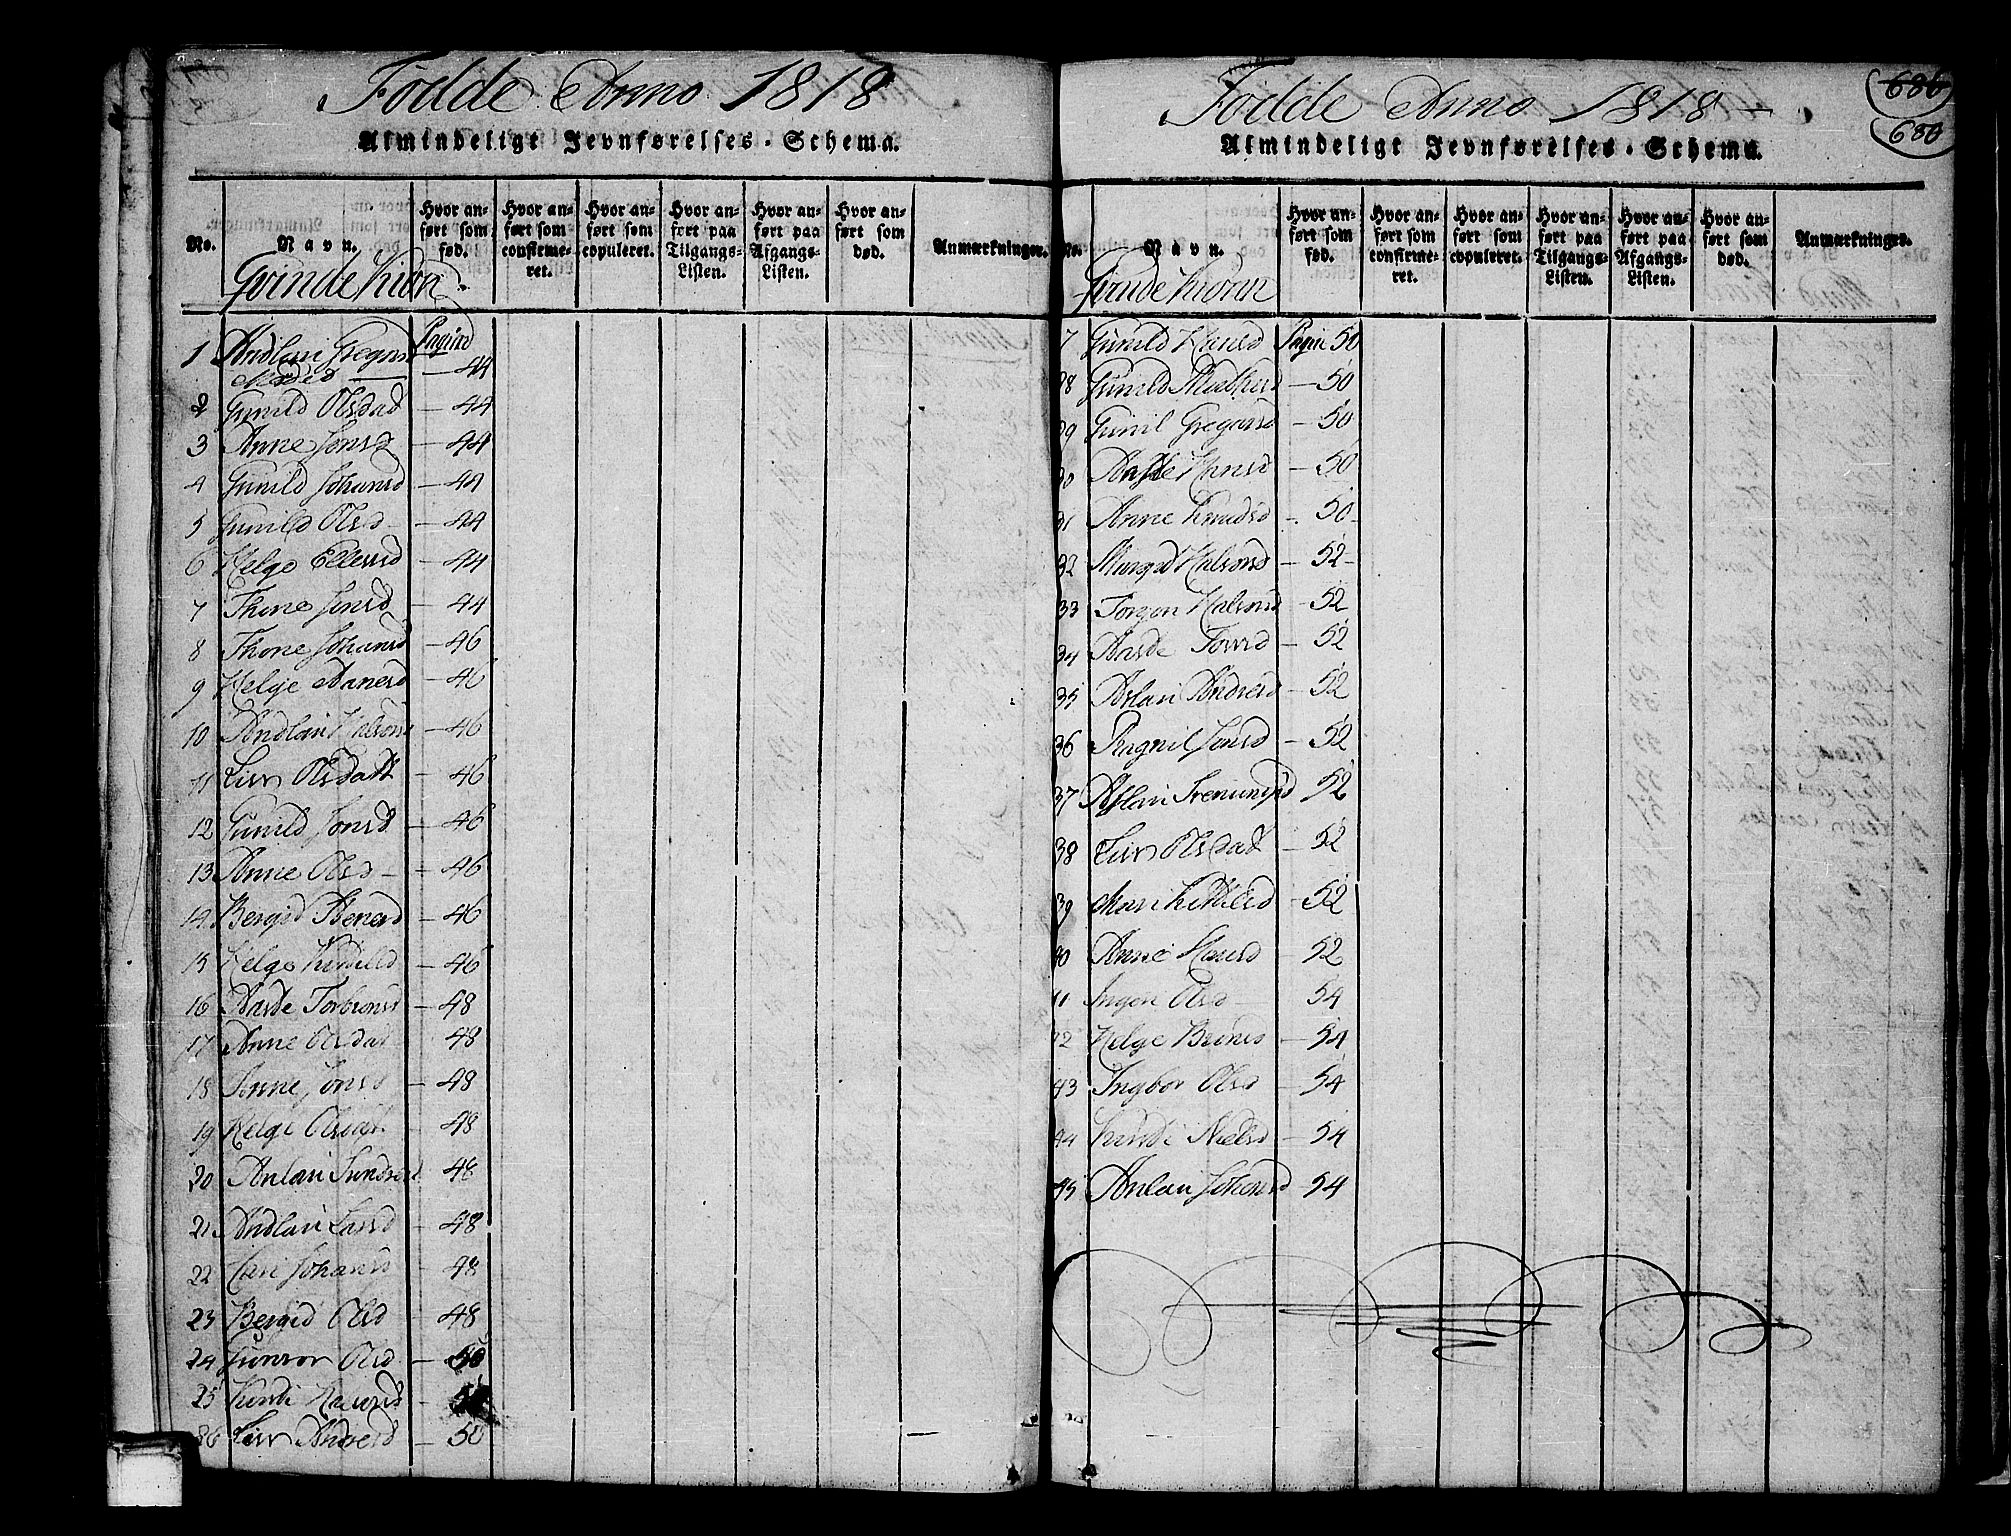 Födde Anno 1818
Almindeligt Jevnførelses-Schema.
No. Navn. Hvor anført som fød. Hvor anført som confirmeret. Hvor anført som copuleret. Hvor anført paa Tilgangs-Listen. Hvor anført paa Afgangs-Listen. Hvor anført som død. Anmærkninger.
Qvinde Kiön
1 Andlaui Gregars Pagina
44
2 Gunild Olsdad — 44
3 Anne Jonsd — 44
4 Gunild Johansd — 44
5 Gunild Olsd — 44
6 Helge Ellevsd — 44
7 Thone Jonsd — 44
8 Thone Johansd — 46
9 Helge Aanesd — 46
10 Andlaui Halvors — 46
11 Livv Olsdatt — 46
12 Gunild Jonsd — 46
13 Anne Olsd — 46
14 Bergid Abensd — 46
15 Helge — 46
16 Aasde Torbionsd — 48
17 Anne Olsdat 48
18 Anne Jonsd — 48
19 Helge Olsdat — 48
20 Anlaui 48
21 Andlaui Larsd — 48
22 Cari Johansd — 48
23 Bergid Olsd — 48
24 Gunvor Olsd — 50
25
26 Livv Andersd — 50
Födde Anno 1818
686
680
Almindeligt Jevnførelses-Schema.
No. Navn. Hvor anført som fød. Hvor anført som confirmeret. Hvor anført som copuleret. Hvor anført paa Tilgangs-Listen. Hvor anført paa Afgangs-Listen. Hvor anført som død. Anmærkninger.
Qvinde Kiönn
7 Gunild Hansd Pagin 50
28 Gunild — 50
29 Gunil Gregarsd — 50
30 Aasde Hansd — 50
31 Anne Knudsd — 50
32 Margid Halvorsd — 52
33 Torgon Halvorsd — 52
34 Aasde Torsd — 52
35 Aslaui Andersd — 52
36 Ragnil Jonsd — 52
37 Aslaui 52
38 Livv Olsdad — 52
39 Mari Kittilsd — 52
40 Anne Hansd — 52
41 Ingon Olsd — 54
42 Helge — 54
43 Ingbor Olsd — 54
44 Nielsd — 54
45 Anlaui Johansd — 54